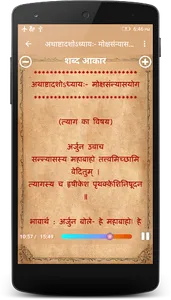 अथाष्टादशोऽध्यायः- मोक्षसंन्यास...
शब्द आकार
अथाष्टादशोऽध्यायः- मोक्षसंन्यासयोग
(त्याग का विषय)
अर्जुन उवाच
सन्न्यासस्य महाबाहो तत्त्वमिच्छामि
वेदितुम् ।
त्यागस्य च हृषीकेश पृथक्केशिनिषूदन
॥
भावार्थ : अर्जुन बोले- हे महाबाहो! हे